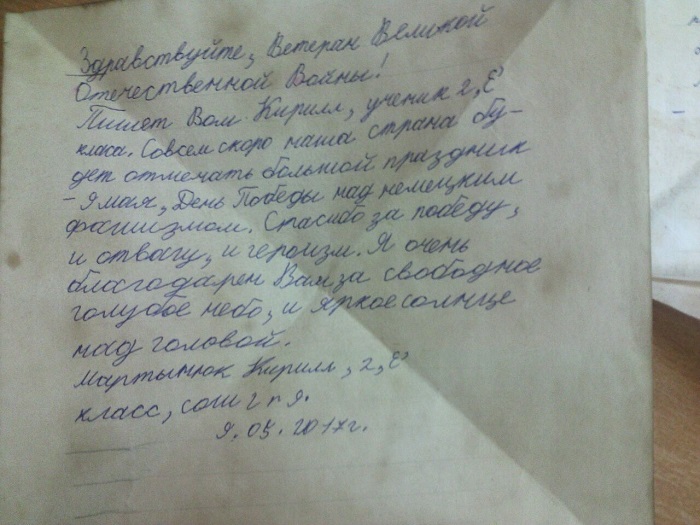 Здравствуйте, Ветеран Великой
Отечественной Войны!
Пишет Вам Кирилл, ученик 2 „Е”
класа. Совсем скоро наша страна бу-
дет отмечать большой праздник
- 9 мая, День Победы над немецким
фашизмом. Спасибо за победу,
и отвагу, и героизм. Я очень
благодарен Вам за свободное
голубое небо, и яркое солнце
над головой.
Мартынюк Кирилл, 2 „Е”
класс, сош 2 п Я.
9.05.2017г.